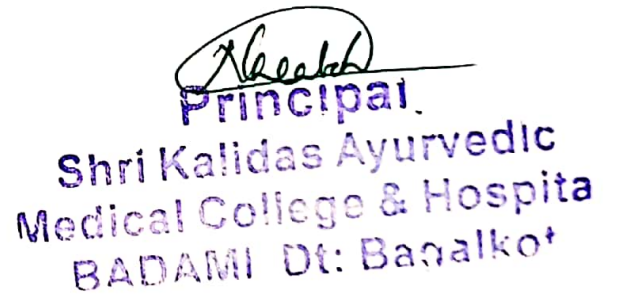 Principal.
Shri Kalidas Ayurvedic
Medical College & Hospita
BADAMI Dt: Bagalkot